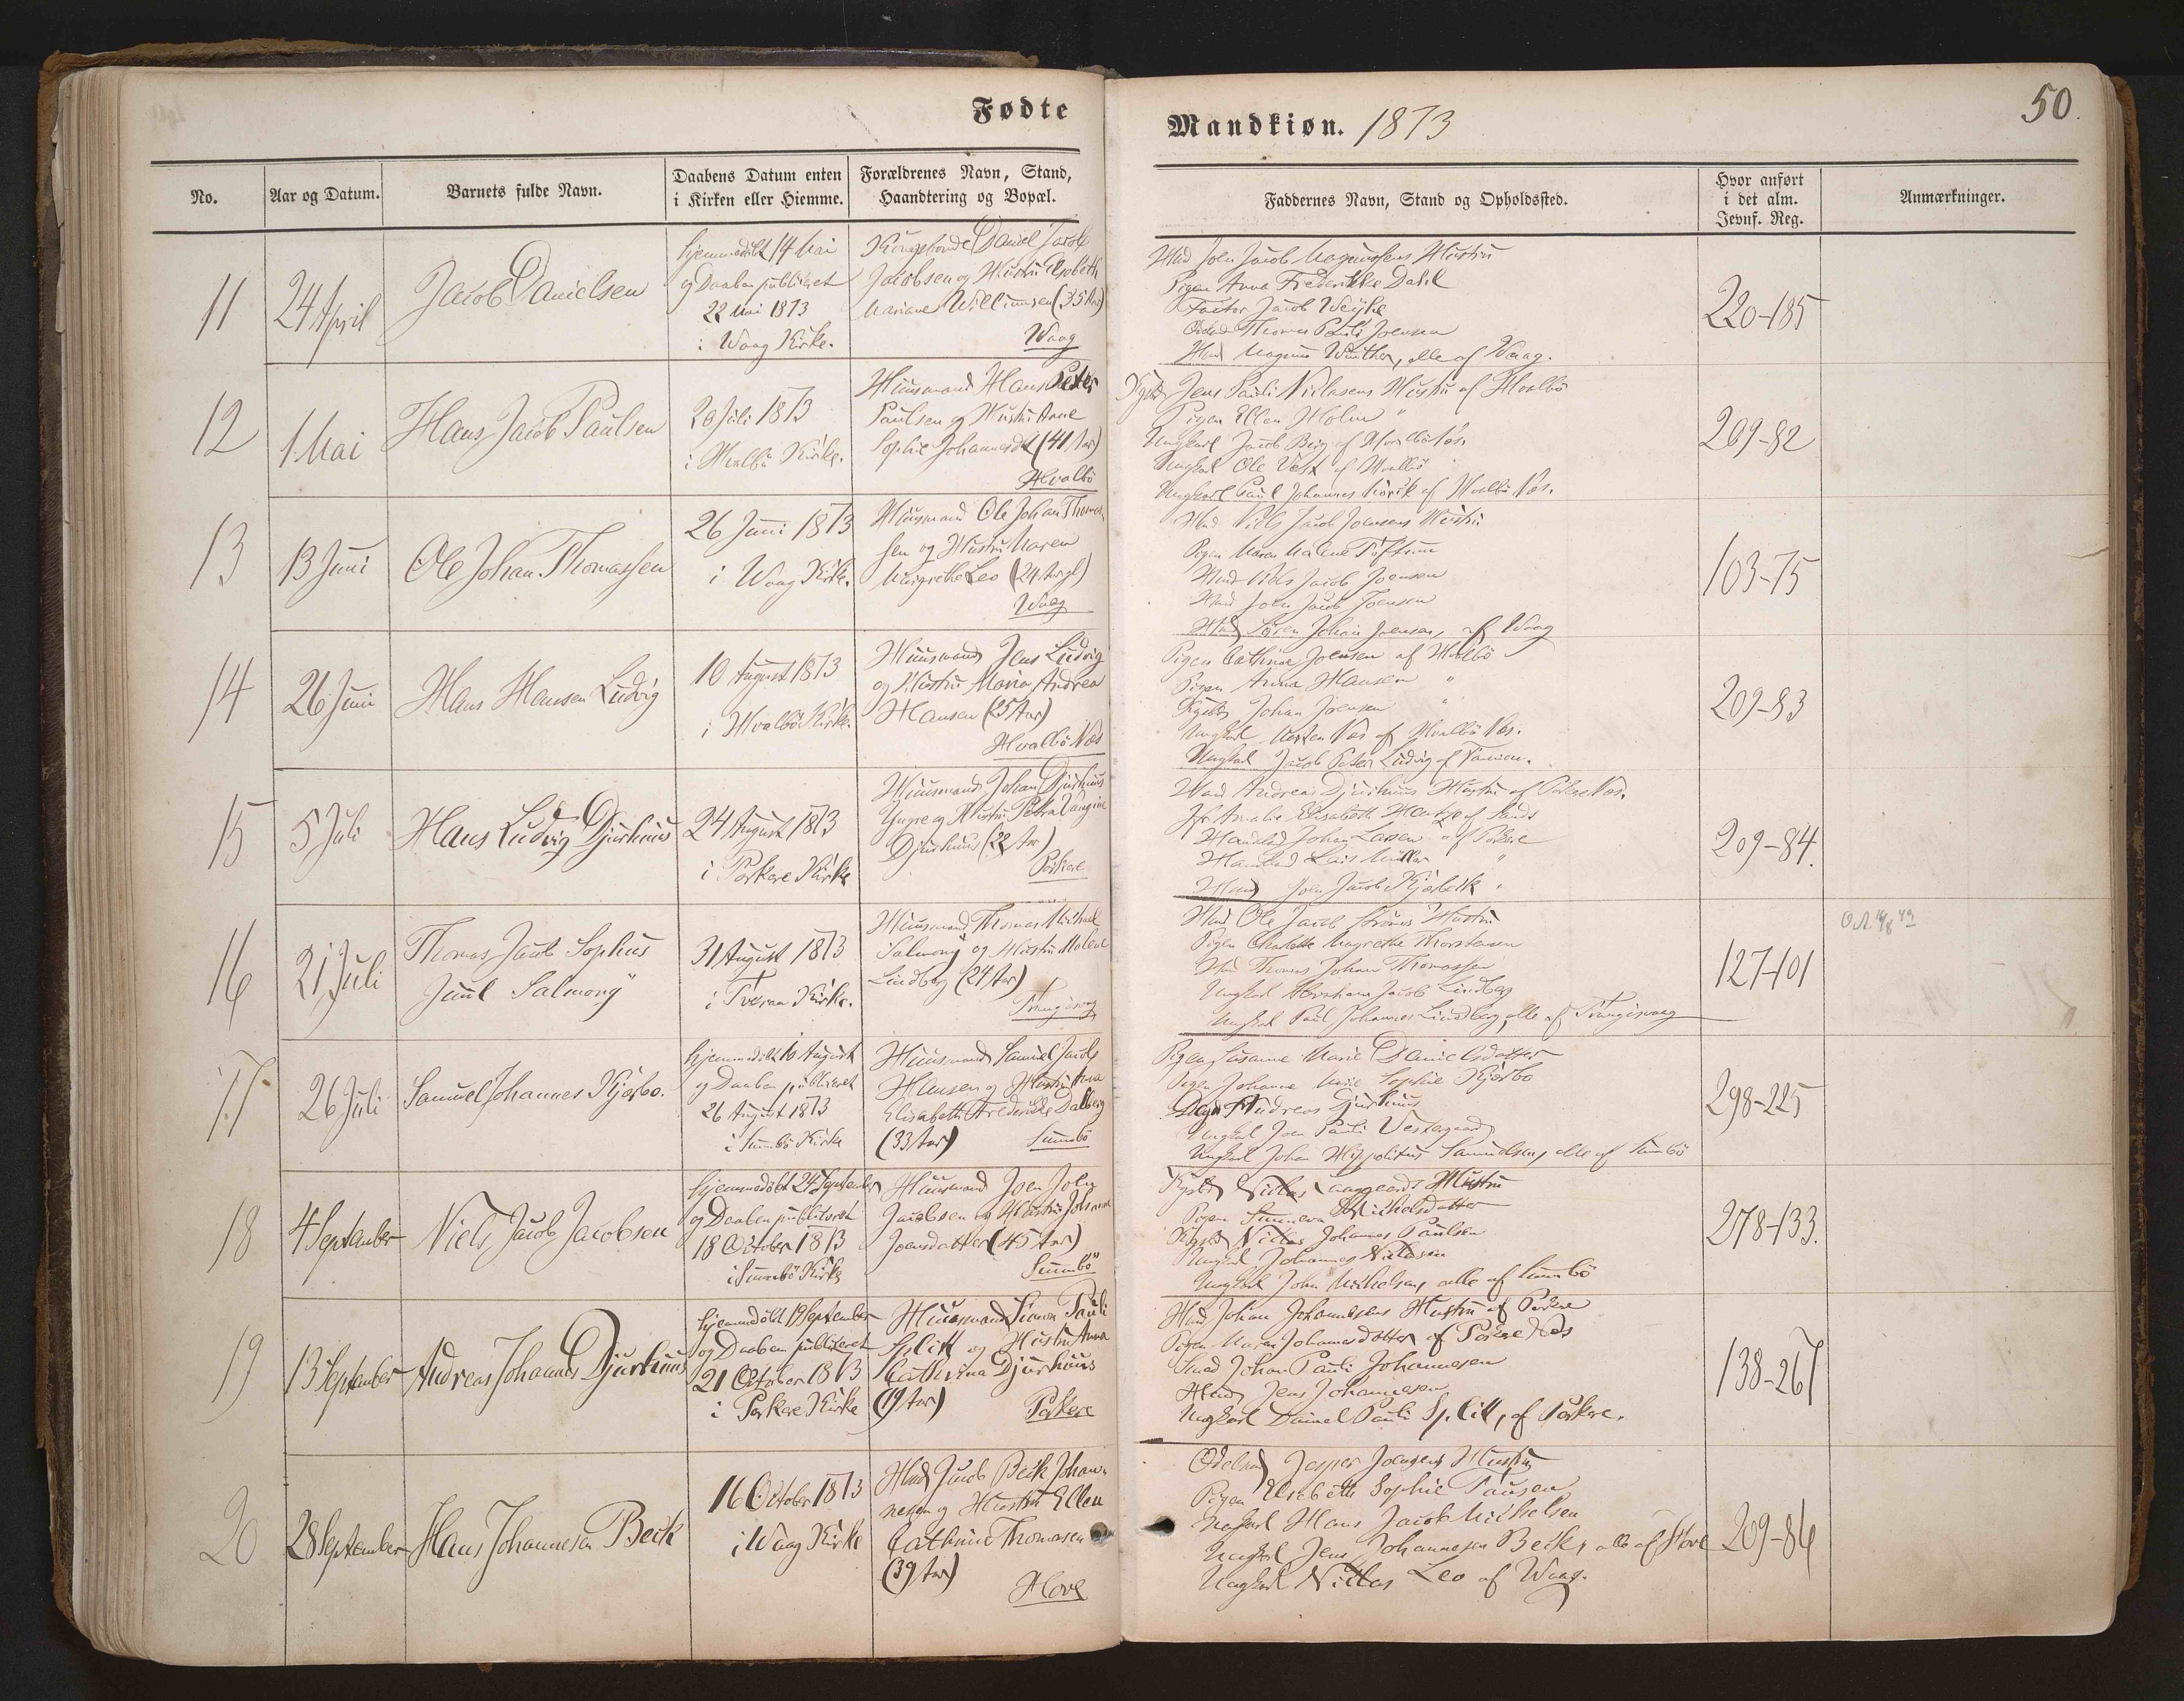 Fødte
No.
Aar og Datum.
Barnets fulde Navn.
Daabens Datum enten
i Kirken eller Hiemme.
Forældrenes Navn, Stand,
Haandtering og Bopæl.
11
24 April
Jacob Danielsen
hjemmedøbt 14 Mai
og Daaben publiceret
22 Mai 1873
i Waag Kirke.
Kongsbonde Daniel Jacob
Jacobsen og Hustru Elsebeth
Mariane Willumsen (35 Aar)
Waag
12
1 Mai
Hans Jacob Paulsen
20 Juli 1873
i Hvalbö Kirke.
Huusmand Hans Peter
Paulsen og Hustru Anne
Sophie Johannesdt (41 Aar)
Hvalbö
13
13 Juni
Ole Johan Thomassen
26 Juni 1873
i Waag Kirke.
Huusmand Ole Johan Thomas-
sen og Hustru Maren
Margrethe Leo (24 Aar gl)
Waag
14
26 Juni
Hans Hansen Ludvig
10 August 1873
i Hvalbö Kirke.
Huusmand Jens Ludvig
og Hustru Maria Andrea
Hansen (25 Aar)
Hvalbö Næs
15
5 Juli
Hans Ludvig Djurhuus
24 August 1873
i Porkere Kirke
Huusmand Johan Djurhuus
Yngre og Hustru Petra
Djurhuus (22 Aar)
Porkere
16
21 Juli
Thomas Jacob Sophus
Juul Salmony
31 August 1873
i Tveraa Kirke.
Huusmand Thomas Michael
Salmony og Hustru Malene
Lindberg (24 Aar)
Trangisvaag
17
26 Juli
Samuel Johannes Kjærbo.
hjemmedöbt 10 August
og Daaben publiceret
26 August 1873
i Sumbö Kirke
Huusmand Samuel Jacob
Hansen og Hustru Anna
Elisabeth Frederikke Dalberg
(33 Aar)
Sumbö
18
4 September
Niels Jacob Jacobsen
hjemmedöbt 24 September
og Daaben publiceret
18 October 1873
i Sumbö Kirke
Huusmand Joen Joen
Jacobsen og Hustru Johanna
Joensdatter (45 Aar)
Sumbö
19
13 September
Andreas Johannes Djurhuus
hjemmedöbt 19 September
og Daaben publiceret
21 October 1873
i Porkere Kirke
Huusmand Simon Pauli
Splitt og Hustru Anna
Cathrina Djurhuus
(19 Aar)
Porkere
20
28 September
Hans Johannesen Beck
16 October 1873
i Waag Kirke
Hmd Jacob Beck Johan-
nesen og Hustru Ellen
Cathrine Thomasen
(39 Aar)
Hove
Mandkiøn. 1873
50.
Faddernes Navn, Stand og Opholdssted.
Hvor anført
i det alm.
Jevnf. Reg.
Anmærkninger.
Hmd Joen Jacob Magnussens Hustru
Pigen Anna Frederikke Dahl
Factor Jacob Weyhe
Thomas Pauli Joensen
Hmd Magnus Winther, alle af Vaag.
220-185
Jens Pauli Niclasens Hustru af Hvalbö
Pigen Ellen Holm "
Ungkarl Jacob Berg af Hvalbö Næs.
Ungkarl Ole Vest af Hvalbö
Ungkarl Paul Johannes af Hvalbö Næs.
209-82
Hmd Niels Jacob Joensens Hustru
Pigen Maren Malene Toftum
Hmd Niels Jacob Joensen
Hmd Joen Jacob Joensen
Hmd Sören Johan Joensen, af Waag
103-75
Pigen Cathrine Joensen af Hvalbö
Pigen Anna Hansen "
Johan Joensen "
Ungkarl Morten Næs af Hvalbö Næs.
Ungkarl Jacob Peter Ludvig af
209-83
Hmd Andreas Djurhuus Hustru af Porkere Næs.
Jfr Amalie Elisabeth Hentze af Sands
Johan Lassen af Porkere
Lars Müller "
Hmd Joen Jacob Kjærbeck "
209-84.
Hmd Ole Jacob Hustru
Pigen Charlotte Magrethe Thorstensen
Hmd Thomas Johan Thomassen
Ungkarl Abraham Jacob Lindberg
Ungkarl Paul Johannes Lindberg, alle af Trangisvaag
127-101
Pigen Susanne Marie Danielsdatter
Pigen Johanne Marie Sophie Kjærbo
Andreas Djurhuus
Ungkarl Joen Pauli Vestergaard
Ungkarl Johan Hippolitus Samuelsen, alle af Sumbö
298-225
Niclas Hustru
Pigen Sunneva Michelsdatter
Niclas Johannes Paulsen
Ungkarl Johannes Niclasen
Ungkarl John Michelsen, alle af Sumbö
278-133.
Hmd Johan Johannesens Hustru af Porkere
Pigen Maren Johannesdatter af Porkere Næs
Smed Johan Pauli Johannesen
Hmd Jens Johannesen
Ungkarl Daniel Pauli Splitt, af Porkere.
138-267
Odelsmd Jesper Joensens Hustru
Pigen Elsebeth Sophie Pausen
Ungkarl Hans Jacob Michelsen
Ungkarl Jens Johannesen Beck, alle af Hove
Ungkarl Niclas Leo af Waag.
209-86